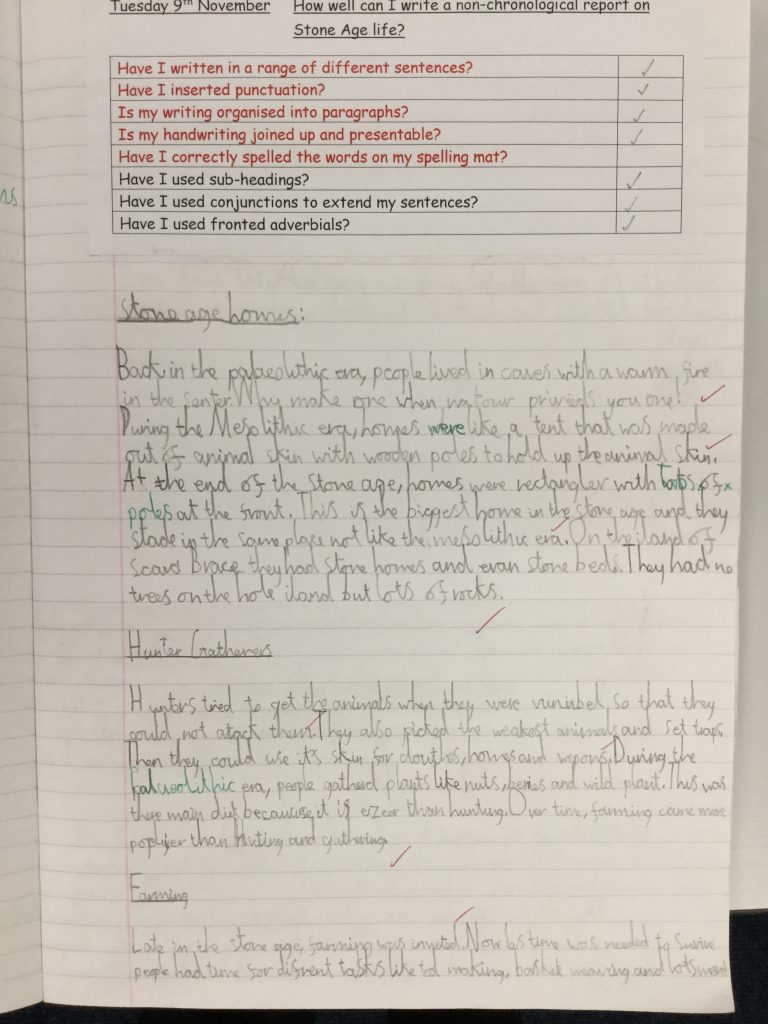 Tuesday 9th November How well can I write a non-chronological report on
Stone Age life?
Have I written in a range of different sentences? ✓
Have I inserted punctuation? ✓
Is my writing organised into paragraphs? ✓
Is my handwriting joined up and presentable? ✓
Have I correctly spelled the words on my spelling mat?
Have I used sub-headings? ✓
Have I used conjunctions to extend my sentences? ✓
Have I used fronted adverbials? ✓
ns
Stone age homes:
Back in the palaeolithic era, people lived in caves with a warm fire
in the senter. Why make one when natour you one!
During the Mesolithic era, homes were like a tent that was made
out of animal skin with wooden poles to hold up the animal skin.
At the end of the stone age, homes were rectangler with lots of
poles at the front. This is the biggest home in the stone age and they
stade in the same place not like the mesolithic era. On the iland of
scara Brace they had stone homes and evan stone beds. They had no
trees on the hole iland but lots of rocks.
Hunter Gatherers
Hunters tried to get the animals when they were so that they
could not atack them. They also picked the weakest animals and set traps
Then they could use it's skin for clouthes, homes and wepons. During the
Palaeolithic era, people gatherd plants like nuts, beries and wild plant. This was
there main diet because it is ezeer than hunting. Over time, farming came more
than hunting and gathering.
Farming
Late in the stone age, farming was inveted. Now les time was needed to survive
people had time for difrent tasks like tol making, basket weaving and lots more